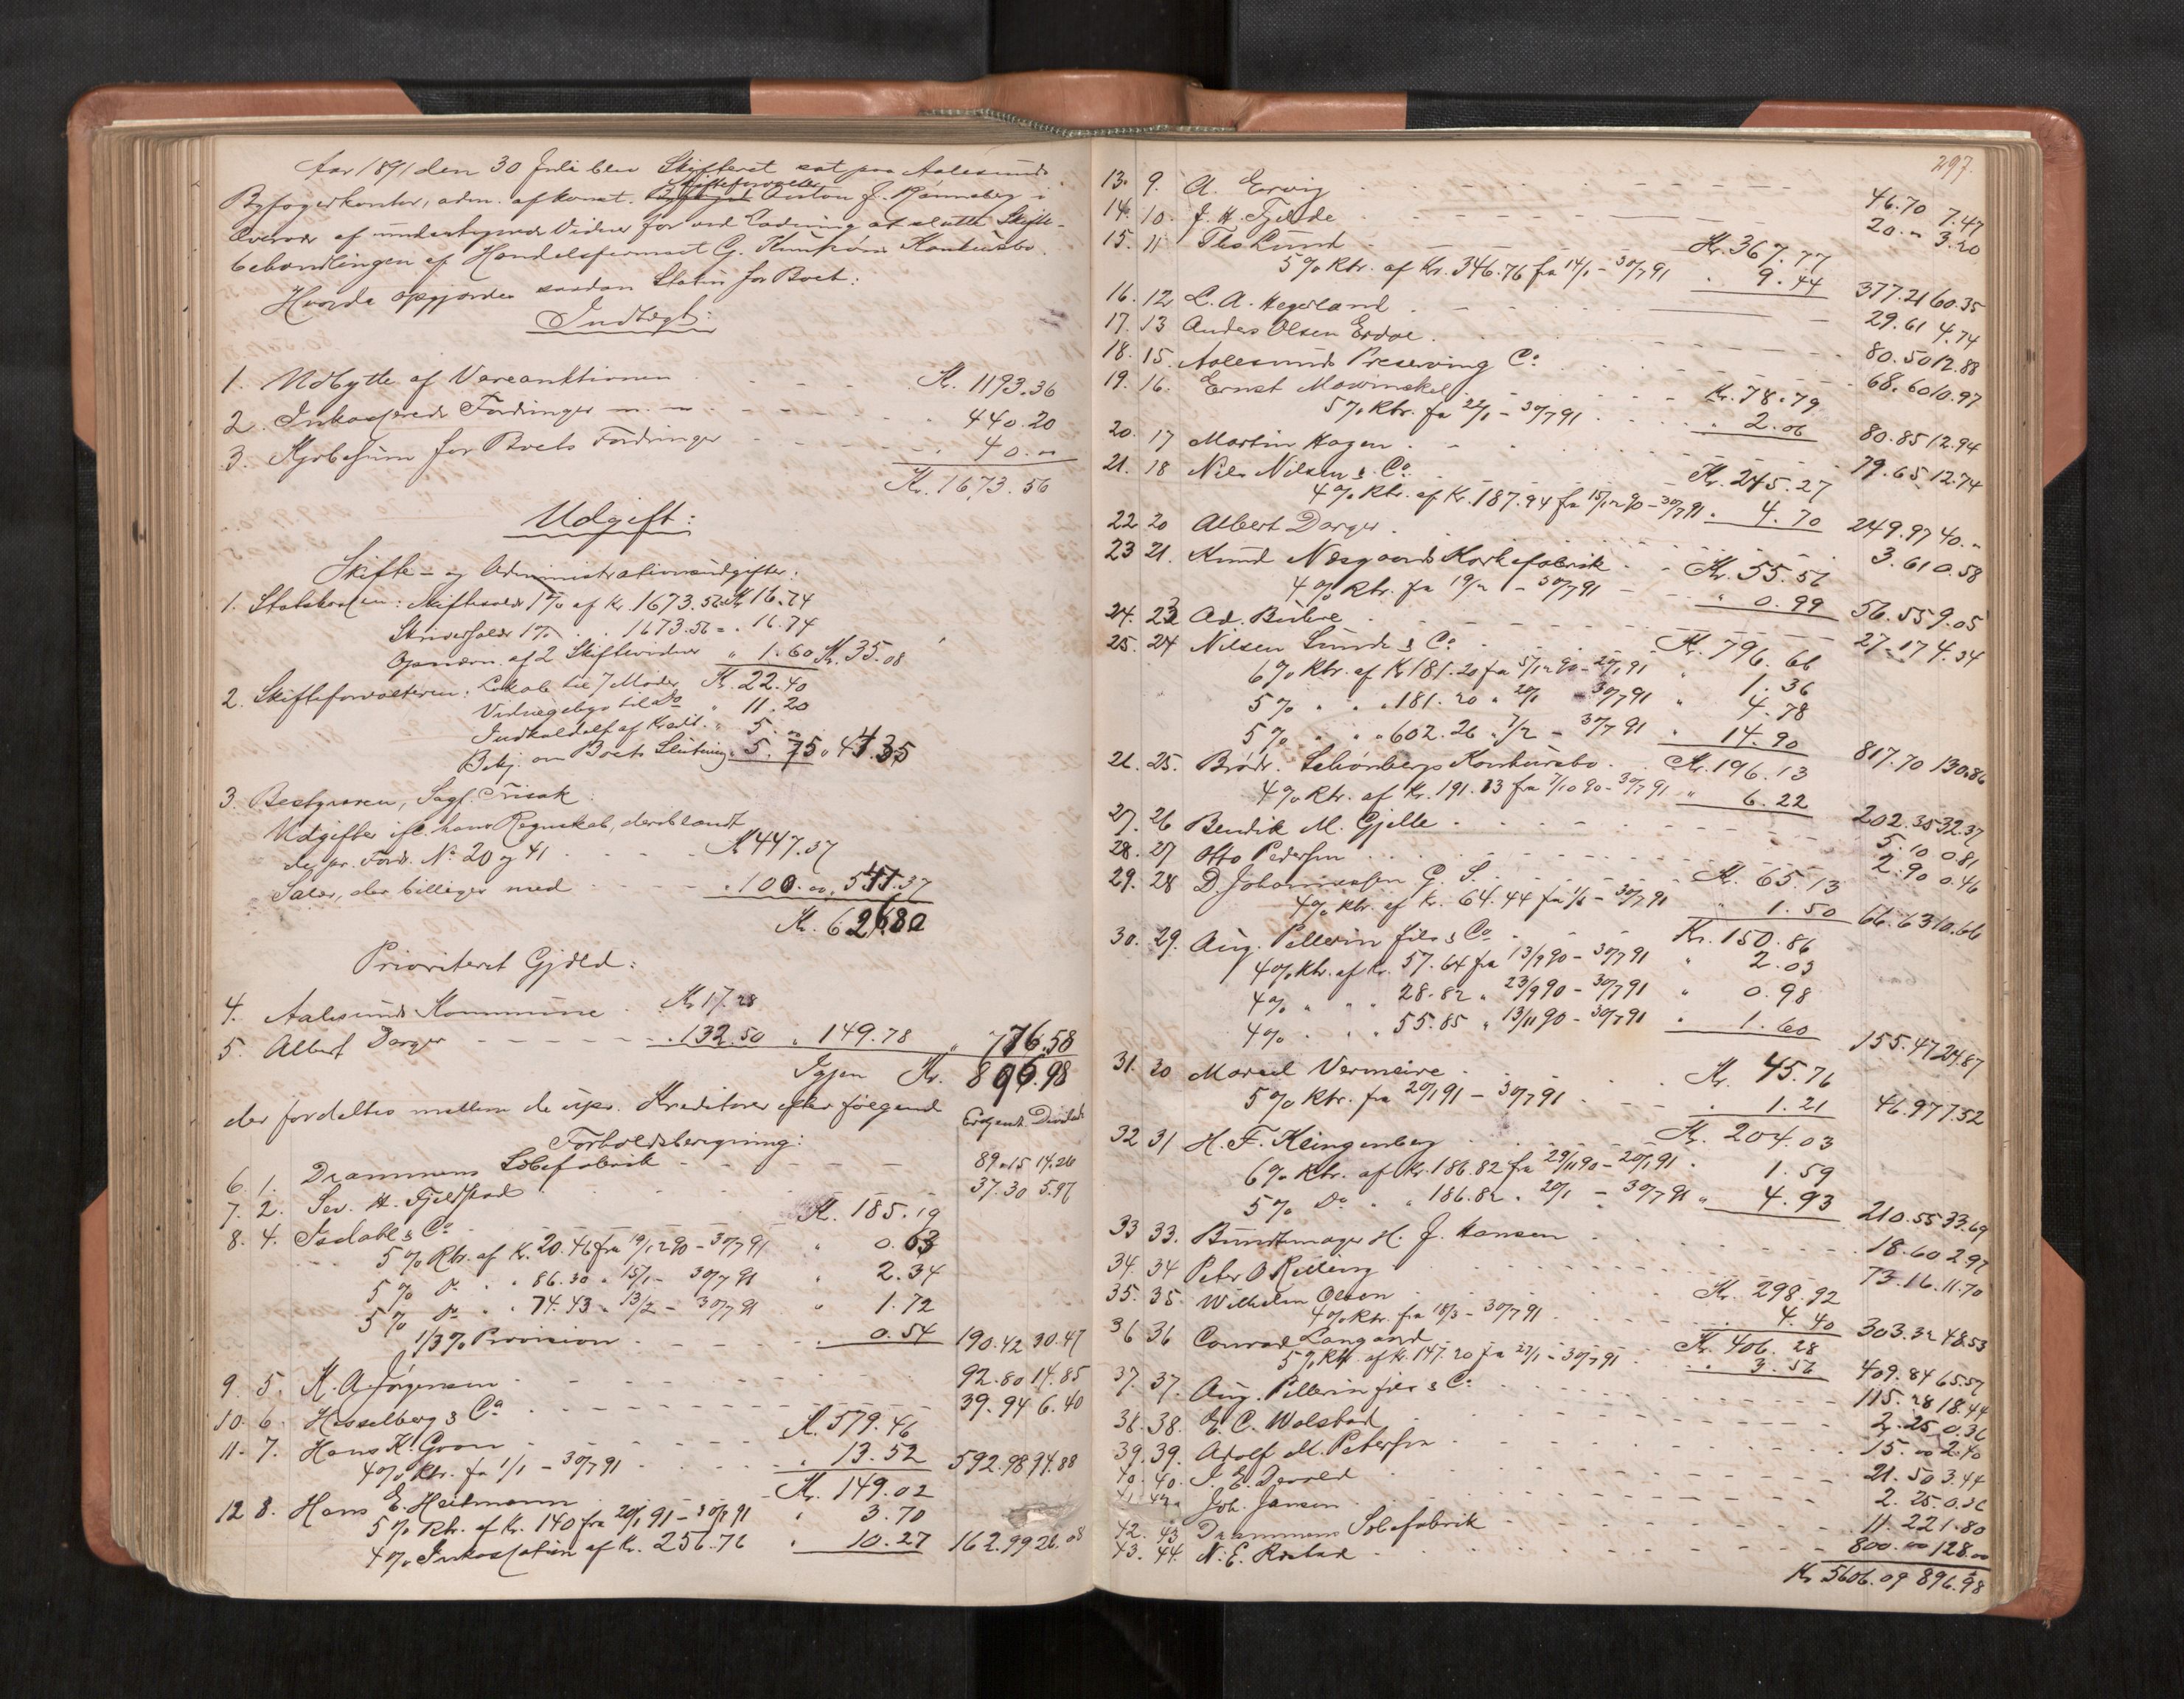 Aar 1891 den 30 Juli blev Skifteret sat paa Aalesunds
Byfogedkontor, adm. af konst. Skifteforvalter Anton J. Rønneberg i
Overvær af undertegnede Vidner for ved Ladning at slutte Skifte-
behandlingen af Handelsfirmaet G. Konkursbo.
Hvorda opgjordes saadan Status for Boet:
Indtægt:
1. Udbytte af Vareauktionen Kr. 1193.36
2. Inkasserede Fordringer 440.20
3. Kjøbesum for Boets Fordringer 40.00
Kr. 1673.56
Udgift:
Skifte- og Administrationsudgifter:
1. Statskassen: Skiftesalær 1% af Kr. 1673.56 Kr. 16.74
Skriversalær 1% . . 1673.56 = . 16.74
Opnævn. af 2 Skiftevidner " 1.60 Kr. 35.08
2. Skifteforvalteren: Lokale til 7 Møder Kr. 22.40
Vidnegebyr til Do " 11.20
Indkaldelse af Kredit. " 5.
Bekj. om Boets Slutning " 5.75 " 44.35
3. Bestyreren, Sagf. Frisak
Udgifter ifl. hans Regnskab, deriblandt
de pr. Ford. No 20 og 41 Kr. 447.37
Salær, der billiges med . 100.00 " 547.37
Kr. 626.80
Prioriteret Gjæld:
4. Aalesunds Kommune Kr. 17.28
5. Albert Dorger . 132.50 " 149.78 " 776.58
Igjen Kr. 896.98
der fordeltes mellem de upr. Kreditorer efter følgende
Forholdsberegning:
6. 1. Drammens Sæbefabrik 89.15 14.26
7. 2. Sev. H. Fjeldstad 37.30 5.97
8. 4. Isdahl & Co Kr. 185.19
5% Rtr. af Kr. 20.46 fra 19/12 90 - 30/7 91 " 0.63
5% Do . " 86.30 " 15/1 - 30/7 91 " 2.34
5% Do . " 74.43 " 13/2 - 30/7 91 " 1.72
1/3% Provision . 0.54 190.42 30.47
9. 5. K. A. Jørgensen 92.80 14.85
10. 6. Hesselberg & Co 39.94 6.40
11. 7. Hans K. Gron Kr. 579.46
4% Rtr. fra 1/1 - 30/7 91 . 13.52 592.98 94.88
12 8. Hans E. Heitmann Kr. 149.02
5% Rtr. af Kr. 140 fra 20/1 91 - 30/7 91 " 3.70
4% Inkassation af Kr. 256.76 . 10.27 162.99 26.08
297.
13. 9. A. Ervig 46.70 7.47
14. 10. J. H. Fjelde 20. " 3.20
15. 11 Ths Lund Kr. 367.77
5% Rtr. af Kr. 346.76 fra 14/1 - 30/7 91 . 9.44 377.21 60.35
16. 12 L. A. Hegerland 29.61 4.74
17. 13 Anders Olsen Erdal 80.50 12.88
18. 15. Aalesunds Preserving Co 68.60 10.97
19. 16. Ernst Mowinckel Kr. 78.79
5% Rtr. fra 22/1 - 30/7 91 " 2.06 80.85 12.94
20. 17 Martin Hagen 79.65 12.74
21. 18 Nils Nilsen & Co Kr. 245.27
4% Rtr. af Kr. 187.94 fra 15/12 90 - 30/7 91 . 4.70 249.97 40. "
22 20 Albert Dorger 3.61 0.58
23 21. Knud Næsgaards Korkefabrik Kr. 55.56
4% Rtr. fra 19/2 - 30/7 91 " 0.99 56.55 9.05
24. 23 Ad. Bühre 27.17 4.34
25. 24 Nilsen Lund & Co Kr. 796.66
6% Rtr. af Kr. 181.20 fra 5/12 90 - 20/1 91 " 1.36
5% . . " 181.20 " 20/1 - 30/7 91 " 4.78
5% . . " 602.26 " 7/2 - 30/7 91 . 14.90 817.70 130.86
26. 25. Brødr. Schønbergs Konkursbo Kr. 196.13
4% Rtr. af Kr. 191.13 fra 7/10 90 - 30/7 91 " 6.22 202.35 32.37
27. 26 Bendik M. Gjelle 5.10 0.81
28. 27 Otto Pedersen 2.90 0.46
29. 28 D. Johannessen G. S. Kr. 65.13
4% Rtr. af Kr. 64.44 fra 1/1 - 30/7 91 " 1.50 66.63 10.66
30. 29. Aug. Pellerin fils & Co Kr. 150.86
4% Rtr. af Kr. 57.64 fra 13/9 90 - 30/7 91 " 2.03
4% " . " 28.82 " 23/9 90 - 30/7 91 " 0.98
4% . . " 55.85 " 13/11 90 - 30/7 91 . 1.60 155.47 24.87
31. 30 Marcel Vermeire Kr. 45.76
5% Rtr. fra 20/1 91 - 30/7 91 . 1.21 46.97 7.52
32 31 H. F. Klingenberg Kr. 204.03
6% Rtr. af Kr. 186.82 fra 29/11 90 - 20/1 91 . 1.59
5% Do . " 186.82 " 20/1 - 30/7 91 " 4.93 210.55 33.69
33 33. Bundtmager H. J. Hansen 18.60 2.97
34. 34 Peter O Relling 73.16 11.70
35. 35. Wilhelm Olsen Kr. 298.92
4% Rtr. fra 18/3 - 30/7 91 . 4.40 303.32 48.53
36 36 Conrad Langaard Kr. 406.28
5% Rtr. af Kr. 147.20 fra 27/1 - 30/7 91 . 3.56 409.84 65.57
37. 37. Aug. Pellerin fils & Co 115.28 18.44
38. 38. E. C. Wolstad 2.25 0.36
39. 39. Adolf M. Petersen 15.00 2.40
40. 40. I. E. Devold 21.50 3.44
41. 42a Joh. Jansen 2.25 0.36
42. 43 Drammens Sæbefabrik 11.22 1.80
43. 44. N. E. Rostad 800.00 128.00
Kr. 5606.09 896.98